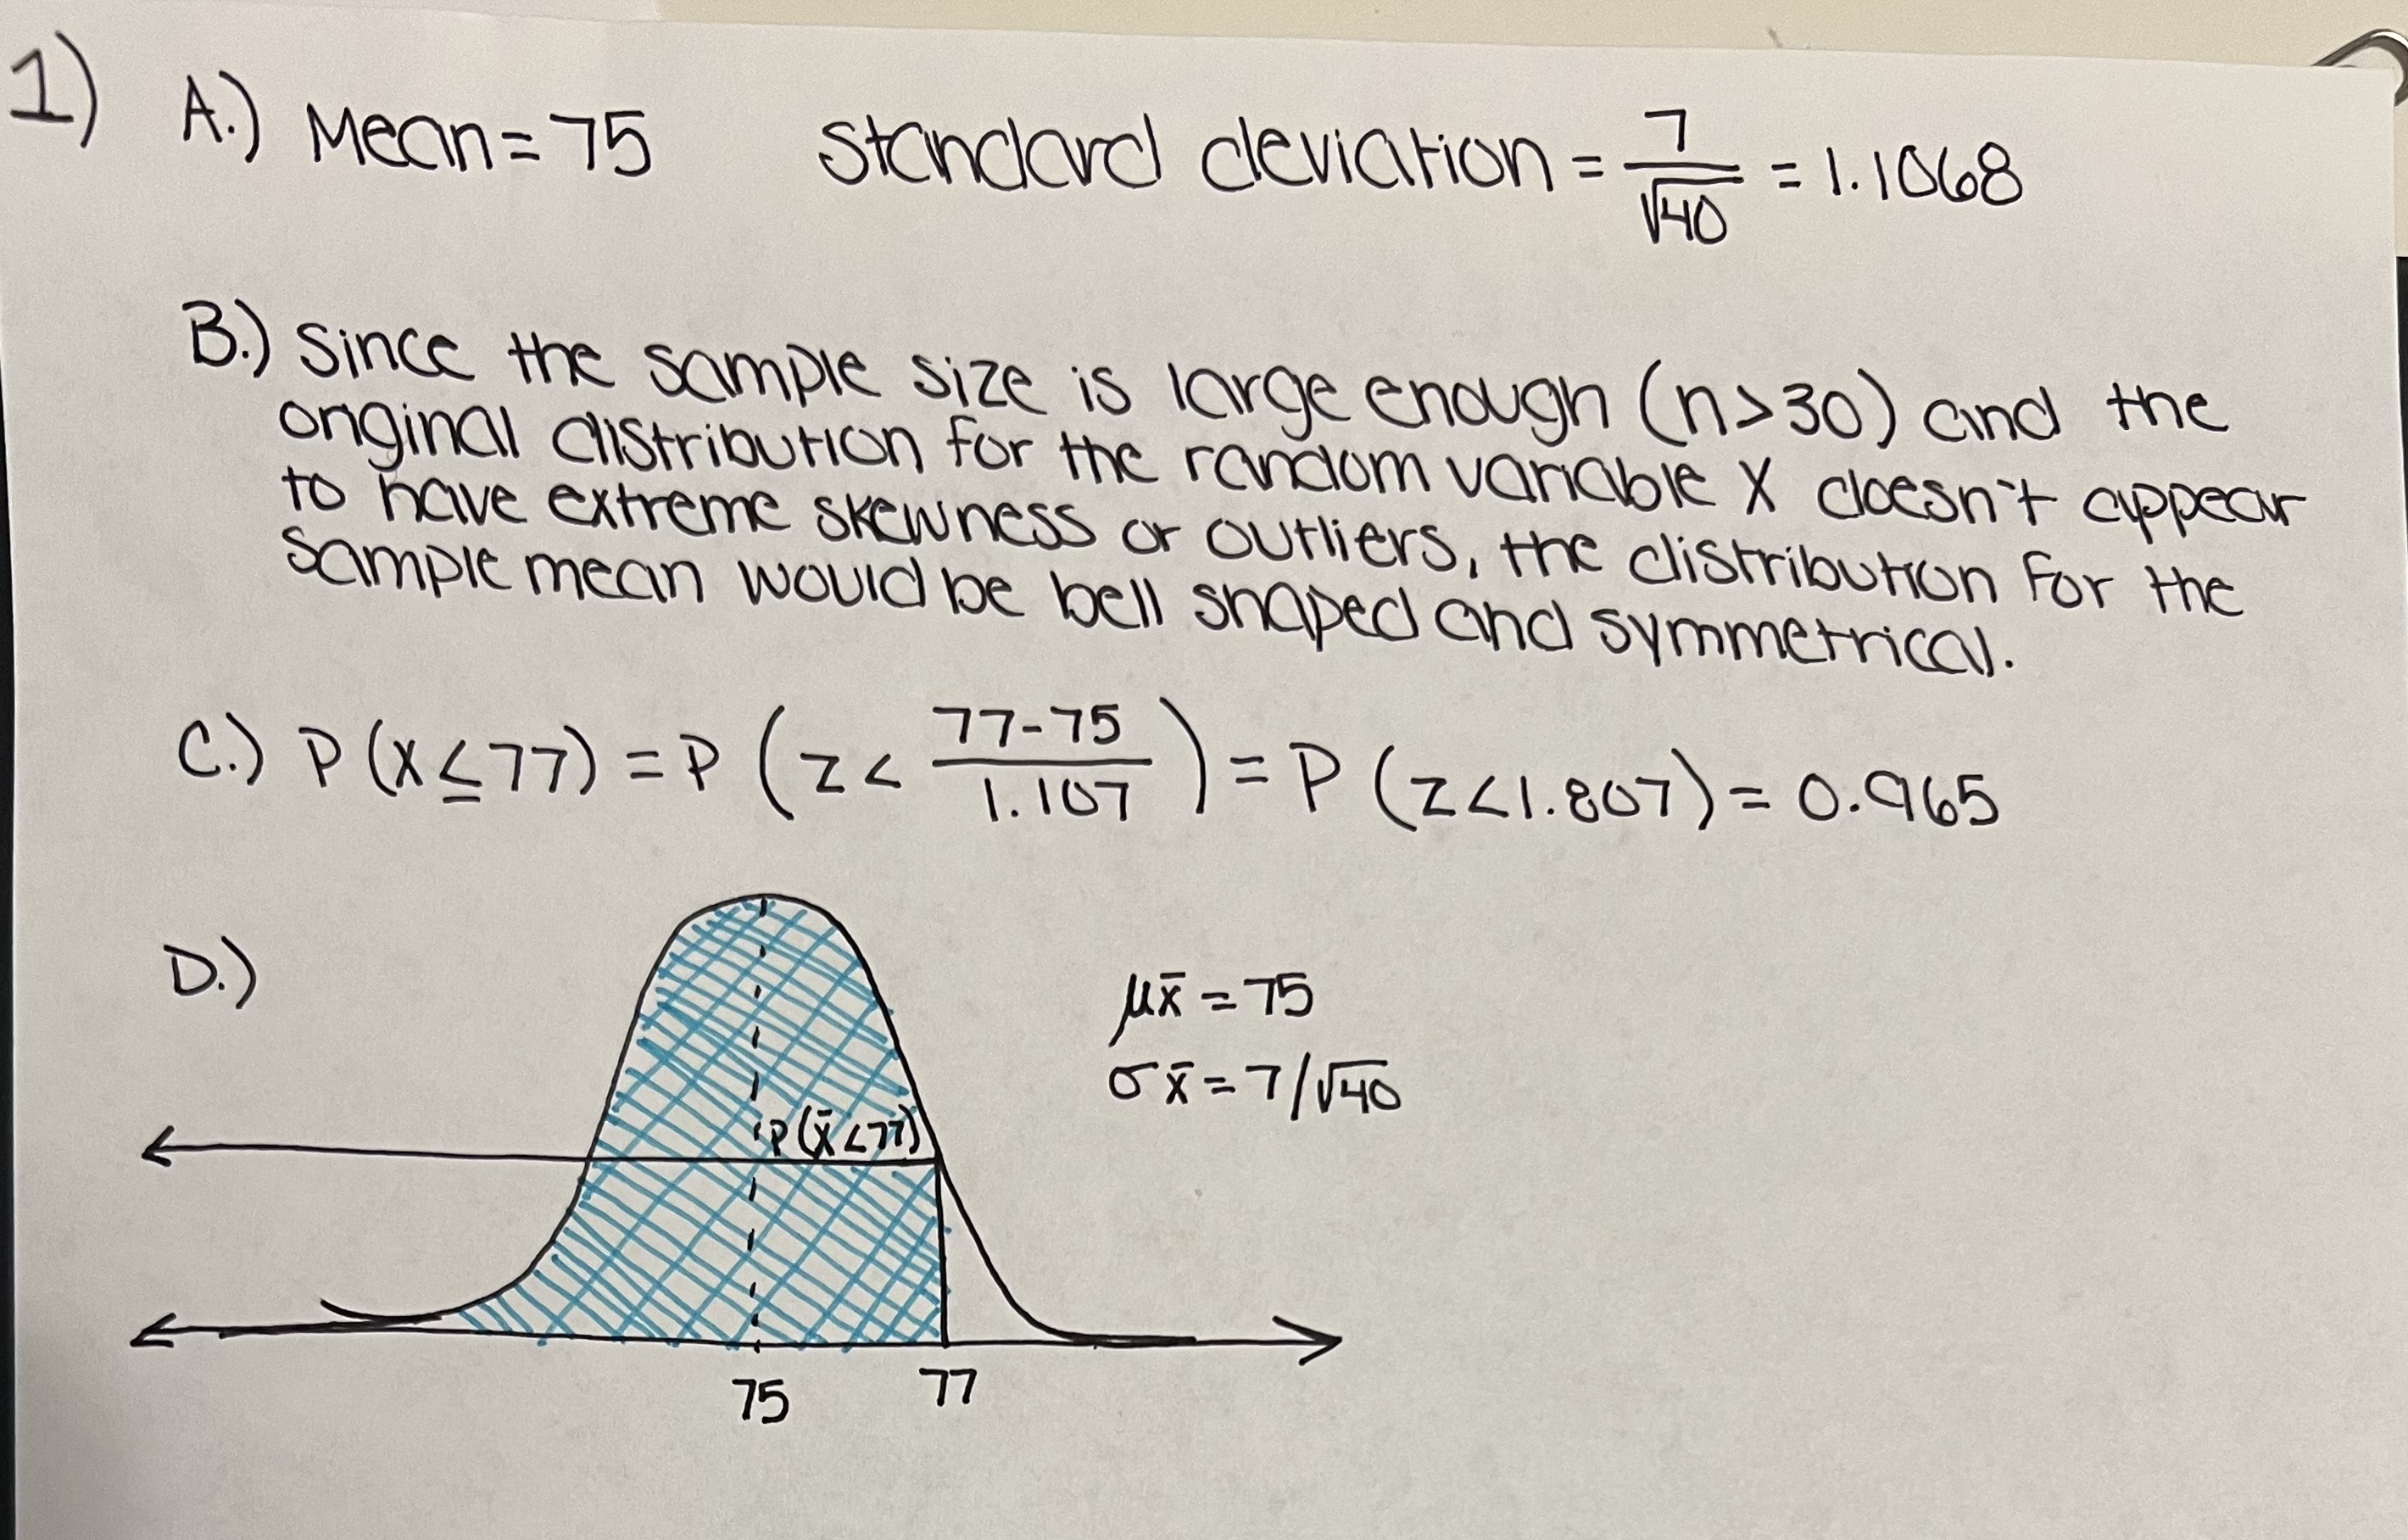 1) A.) Mean = 75 Standard deviation = 7/√40 = 1.1068
B.) Since the sample size is large enough (n>30) and the
original distribution for the random variable X doesn't appear
to have extreme skewness or outliers, the distribution for the
sample mean would be bell shaped and symmetrical.
C.) P(X≤77) = P(Z< (77-75)/1.107) = P(Z<1.807) = 0.965
D.)
μx̄ = 75
σx̄ = 7/√40
P(x̄<77)
75 77